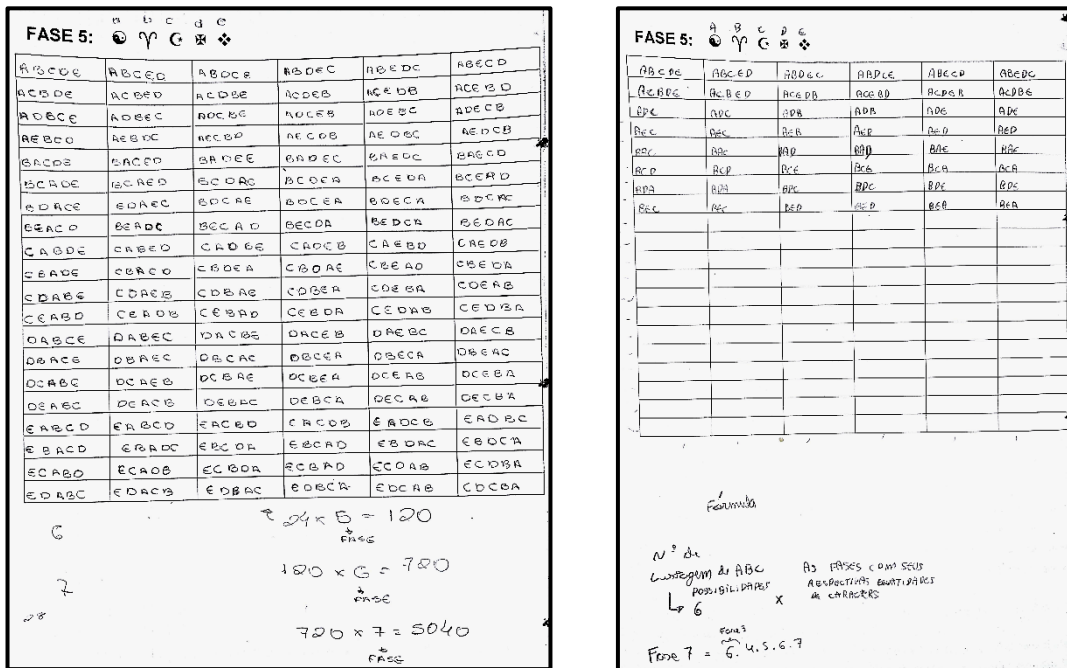 a b c d e
FASE 5: ☯ ♈ ☪ ✠ ❖
ABCDE ABCED ABDCE ABDEC ABEDC ABECD
ACBDE ACBED ACDBE ACDEB ACEDB ACEBD
ADBCE ADBEC ADCBE ADCEB ADEBC ADECB
AEBCD AEBDC AECBD AECDB AEDBC AEDCB
BACDE BACED BADCE BADEC BAEDC BAECD
BCADE BCAED BCDAE BCDEA BCEDA BCEAD
BDACE BDAEC BDCAE BDCEA BDECA
BEACD BEADC BECAD BECDA BEDCA BEDAC
CABDE CABED CADBE CADEB CAEBD CAEDB
CBADE CBDEA CBDAE CBEAD CBEDA
CDABE CDAEB CDBAE CDBEA CDEBA CDEAB
CEABD CEADB CEBAD CEBDA CEDAB CEDBA
DABCE DABEC DACBE DACEB DAEBC DAECB
DBACE DBAEC DBCEA DBECA DBEAC
DCABE DCAEB DCBAE DCBEA DCEAB DCEBA
DEABC DEACB DEBAC DEBCA DECAB DECBA
EABCD EACBD EADCB EADBC
EBACD EBADC EBCDA EBCAD EBDAC EBDCA
ECABD ECADB ECBDA ECBAD ECDAB ECDBA
EDABC EDACB EDBAC EDBCA EDCAB
6
24 x 5 = 120
FASE
120 x 6 = 720
FASE
7
28
720 x 7 = 5040
FASE
A B C D E
FASE 5: ☯ ♈ ☪ ✠ ❖
ABCDE ABCED ABDEC ABDCE ABECD ABEDC
ACBDE ACBED ACEDB ACEBD ACDEB ACDBE
ADC ADC ADB ADB ADE ADE
AEC AEC AEB AEB AED AED
BAC BAC BAD BAD BAE BAE
BCD BCD BCE BCE BCA BCA
BDA BDA BDC BDC BDE BDE
BEC BEC BED BED BEA BEA
Fórmula
Nº de
de ABC
POSSIBILIDADES
↳ 6 x
AS FASES COM SEUS
RESPECTIVAS
DE
Fase 3
Fase 7 = 6.4.5.6.7